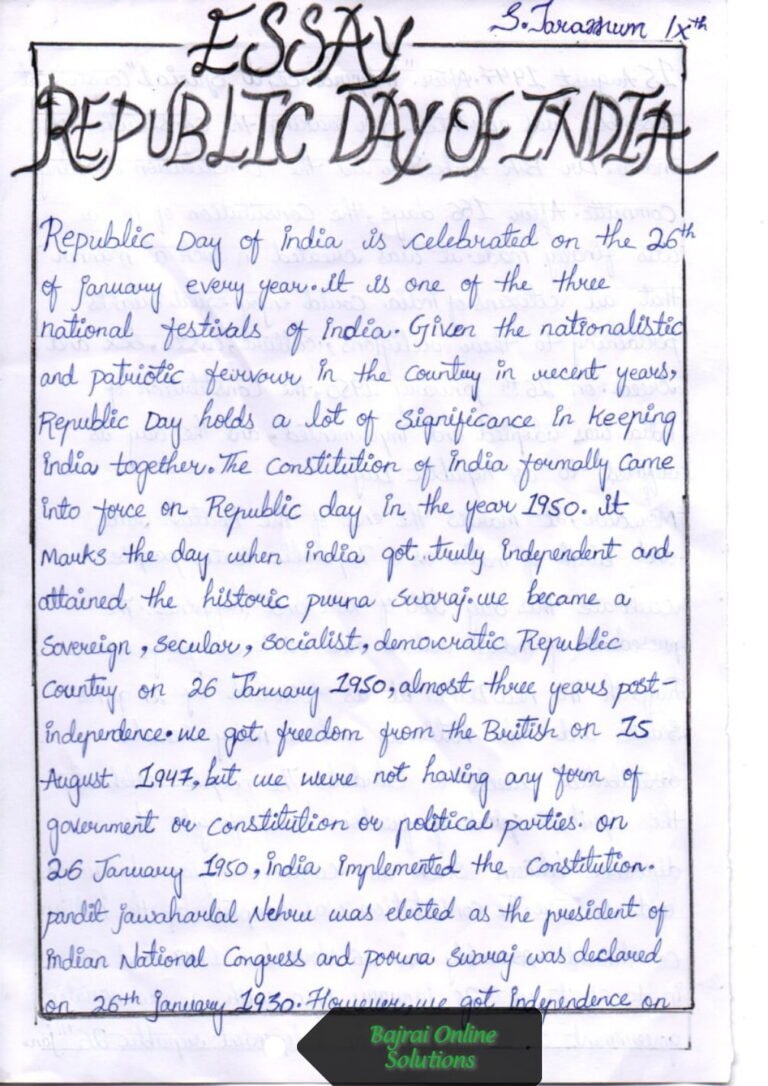 S. Tarassum IXth
ESSAY
REPUBLIC DAY OF INDIA
Republic Day of india is celebrated on the 26th
of january every year. it is one of the three
national festivals of india. Given the nationalistic
and patriotic fervour in the country in recent years,
Republic Day holds a lot of significance in keeping
india together. The constitution of india formally came
into force on Republic day in the year 1950. it
marks the day when india got truly independent and
attained the historic purna swaraj. we became a
sovereign, secular, socialist, democratic Republic
country on 26 January 1950, almost three years post-
independence. we got freedom from the British on 15
August 1947, but we were not having any form of
government or constitution or political parties. on
26 January 1950, india implemented the constitution.
pandit jawaharlal Nehru was elected as the president of
indian National Congress and poorna swaraj was declared
on 26th january 1930. However, we got independence on
Bajrai Online
Solutions